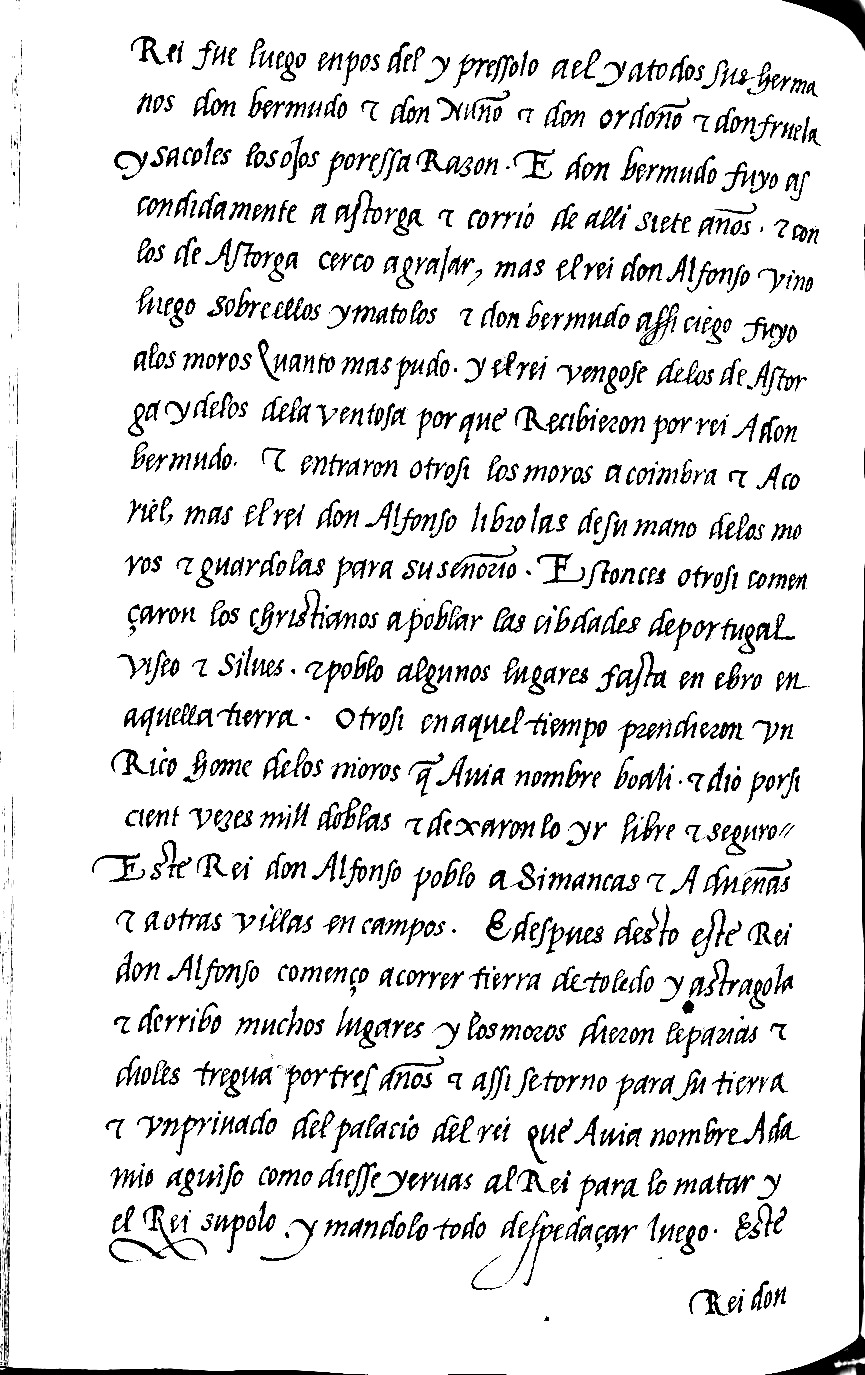 Rei fue luego enpos del y pressolo a el y atodos sus herma
nos don bermudo ⁊ don Nuño ⁊ don ordoño ⁊ don fruela
y sacoles los ojos por essa Razon. E don bermudo fuyo as
condidamente a astorga ⁊ corrio de alli siete años. ⁊ con
los de Astorga cerco agrajar, mas el rei don Alfonso vino
luego sobre ellos y matolos ⁊ don bermudo assi ciego fuyo
alos moros Quanto mas pudo. y el rei vengose delos de Astor
ga y delos dela ventosa por que Recibieron por rei A don
bermudo. ⁊ entraron otrosi los moros a coimbra ⁊ Aco
riel, mas el rei don Alfonso librolas de su mano delos mo
ros ⁊ guardolas para su señorio. Estonces otrosi comen
çaron los christianos a poblar las cibdades de portugal
viseo ⁊ Silues. ⁊ poblo algunos lugares fasta en ebro en
aquella tierra. Otrosi en aquel tiempo prendieron vn
Rico home delos moros q̃ Auia nombre boali. ⁊ dio por si
cient vezes mill doblas ⁊ dexaron lo yr libre ⁊ seguro//
Este Rei don Alfonso poblo a Simancas ⁊ A dueñas
⁊ a otras villas en campos. E despues desto este Rei
don Alfonso començo a correr tierra de toledo y astragola
⁊ derribo muchos lugares y los moros dieron le parias ⁊
dioles tregua por tres años ⁊ assi se torno para su tierra
⁊ vn priuado del palacio del rei que Auia nombre Ada
mio aguiso como diesse yeruas al Rei para lo matar y
el Rei supolo y mandolo todo despedaçar luego. Este
Rei don